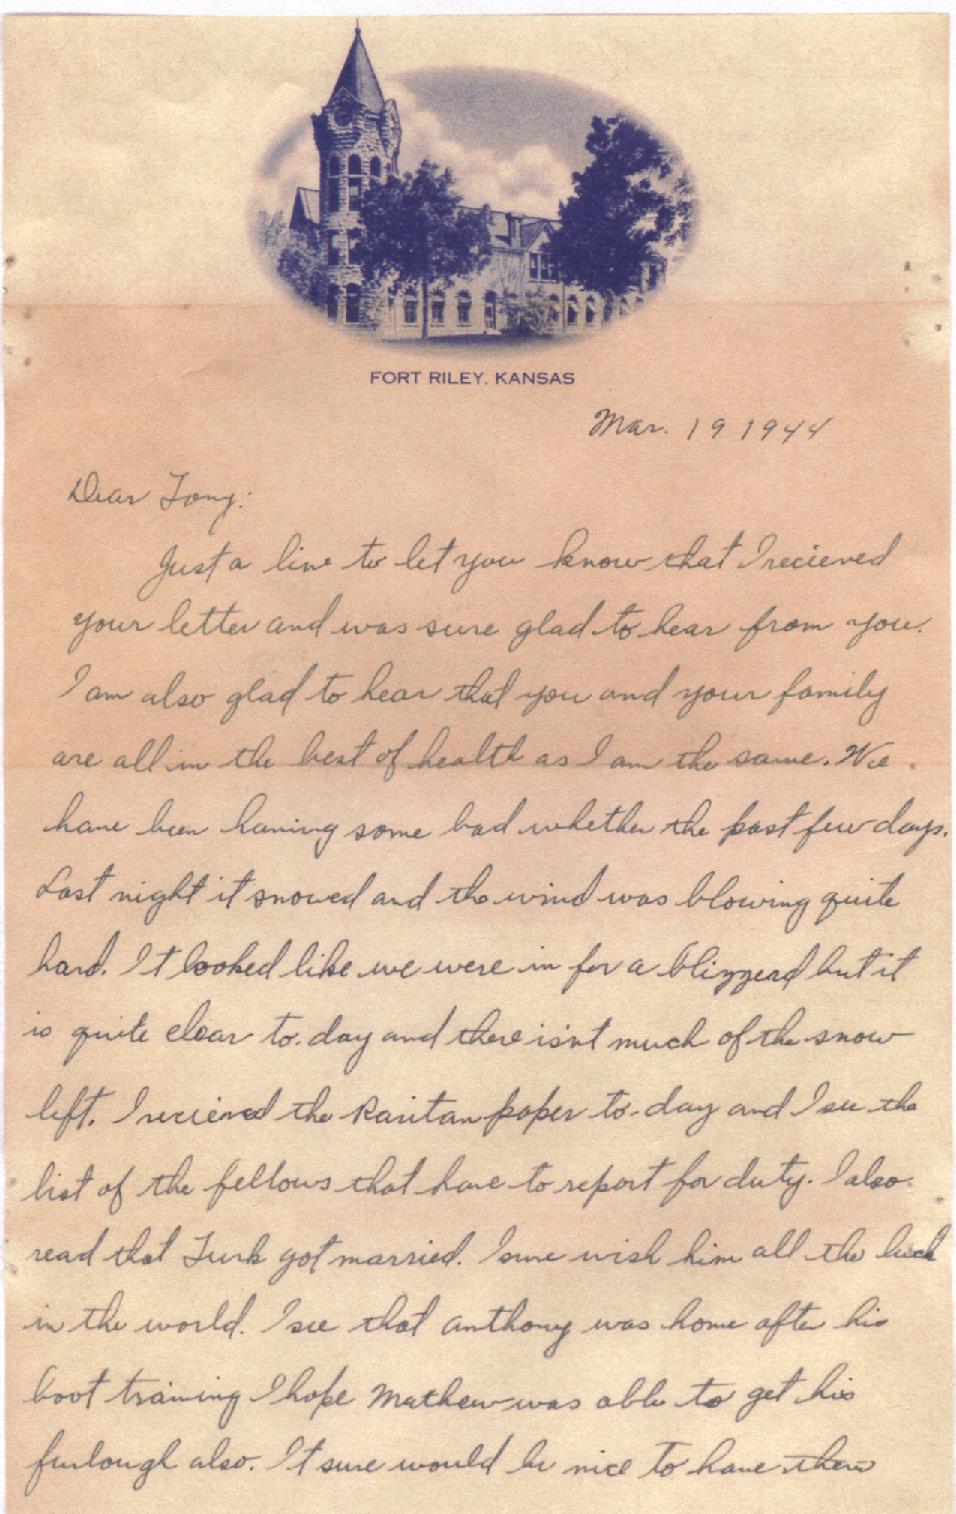 FORT RILEY, KANSAS
Mar. 19 1944
Dear Tony:
Just a line to let you know that I recieved
your letter and was sure glad to hear from you.
I am also glad to hear that you and your family
are all in the best of health as I am the same. We
have been having some bad whether the past few days.
Last night it snowed and the wind was blowing quite
hard. It looked like we were in for a blizzerd but it
is quite clear to-day and there isnt much of the snow
left. I recieved the Raritan paper to-day and I see the
list of the fellows that have to report for duty. I also
read that Turk got married. I sure wish him all the luck
in the world. I see that anthony was home after his
boot training I hope Mathew was able to get his
furlough also. It sure would be nice to have them